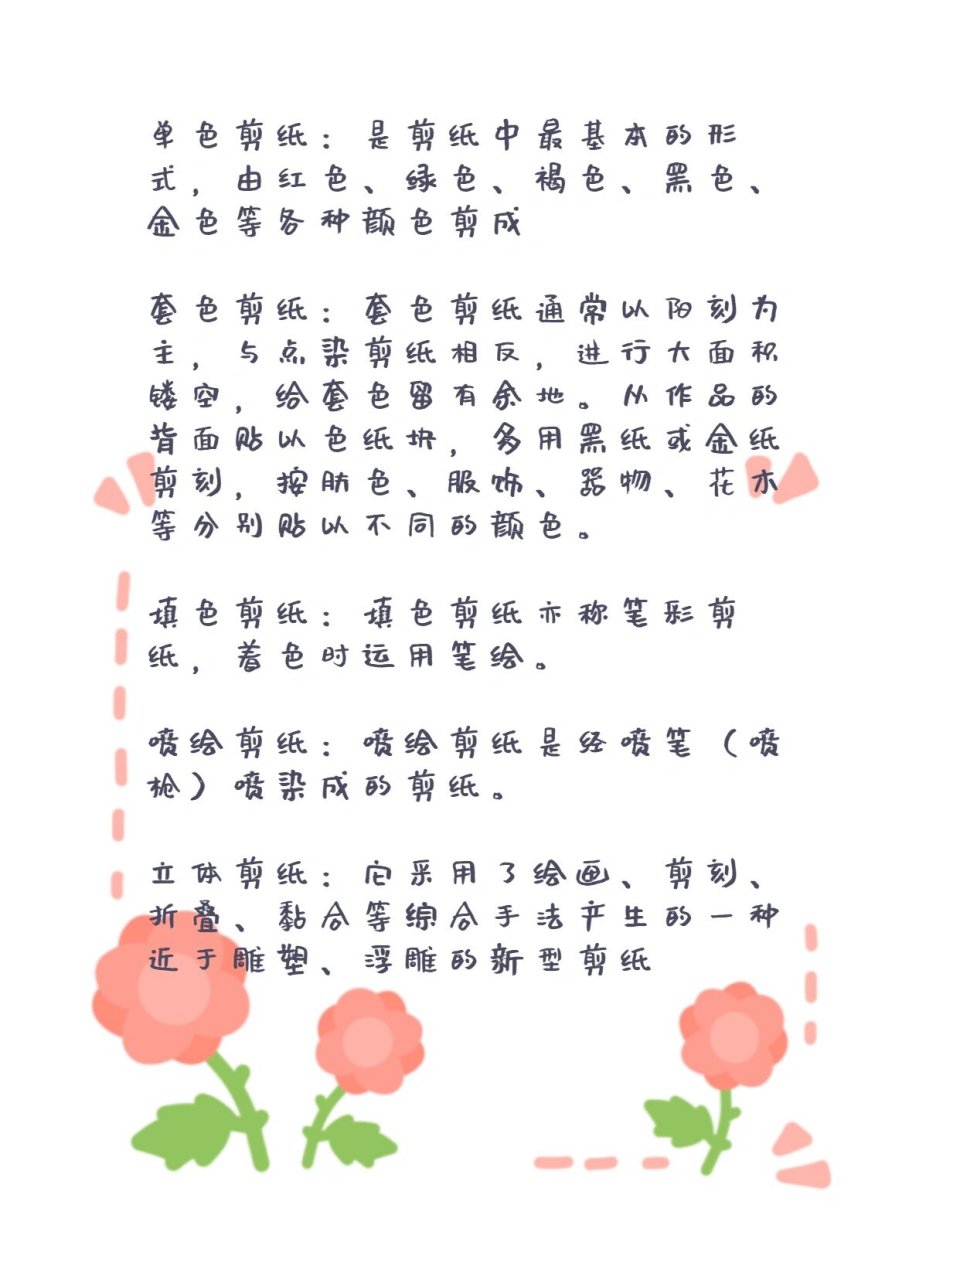 单色剪纸：是剪纸中最基本的形
式，由红色、绿色、褐色、黑色、
金色等各种颜色剪成
套色剪纸：套色剪纸通常以阳刻为
主，与点染剪纸相反，进行大面积
镂空，给套色留有余地。从作品的
背面贴以色纸块，多用黑纸或金纸
剪刻，按肤色、服饰、器物、花木
等分别贴以不同的颜色。
填色剪纸：填色剪纸亦称笔彩剪
纸，着色时运用笔绘。
喷绘剪纸：喷绘剪纸是经喷笔（喷
枪）喷染成的剪纸。
立体剪纸：它采用了绘画、剪刻、
折叠、黏合等综合手法产生的一种
近于雕塑、浮雕的新型剪纸